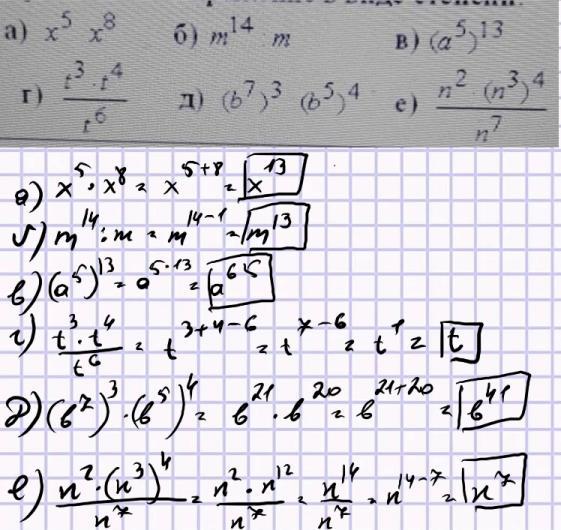 а) x⁵ x⁸ б) m¹⁴ m в) (a⁵)¹³
г) t³ · t⁴ / t⁶ д) (b⁷)³ (b⁵)⁴ е) n² · (n³)⁴ / n⁷
а) x⁵ · x⁸ = x⁵⁺⁸ = x¹³
б) m¹⁴ : m = m¹⁴⁻¹ = m¹³
в) (a⁵)¹³ = a⁵·¹³ = a⁶⁵
г) t³ · t⁴ / t⁶ = t³⁺⁴⁻⁶ = t⁷⁻⁶ = t¹ = t
д) (b⁷)³ · (b⁵)⁴ = b²¹ · b²⁰ = b²¹⁺²⁰ = b⁴¹
е) n² · (n³)⁴ / n⁷ = n² · n¹² / n⁷ = n¹⁴ / n⁷ = n¹⁴⁻⁷ = n⁷